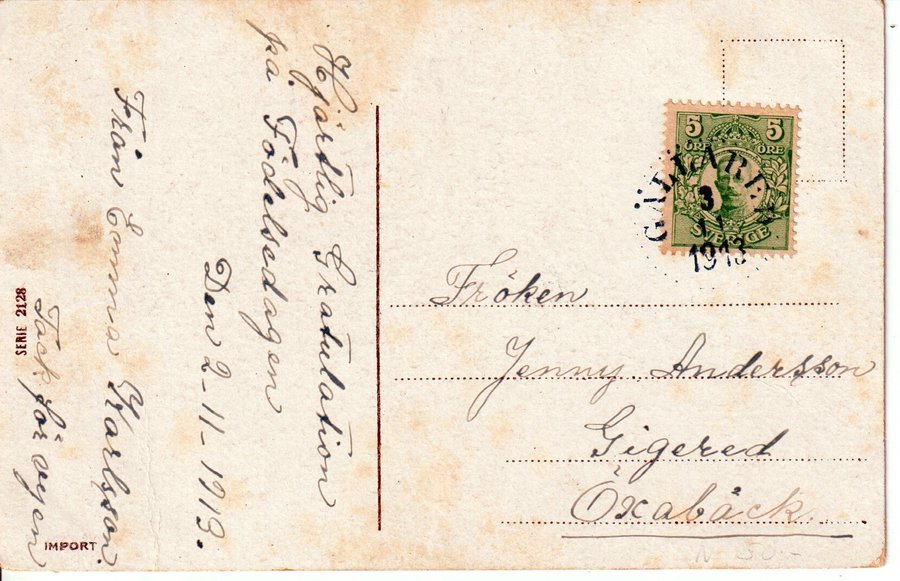 Hjärtlig Gratulation
på Födelsedagen
Den 2-11-1913.
Från Emma Karlsson.
Tack för
SERIE 2128
IMPORT
5 5
ÖRE ÖRE
SVERIGE
3
11
1913
Fröken
Jenny Andersson
Gigered
Öxabäck.
N 50:-